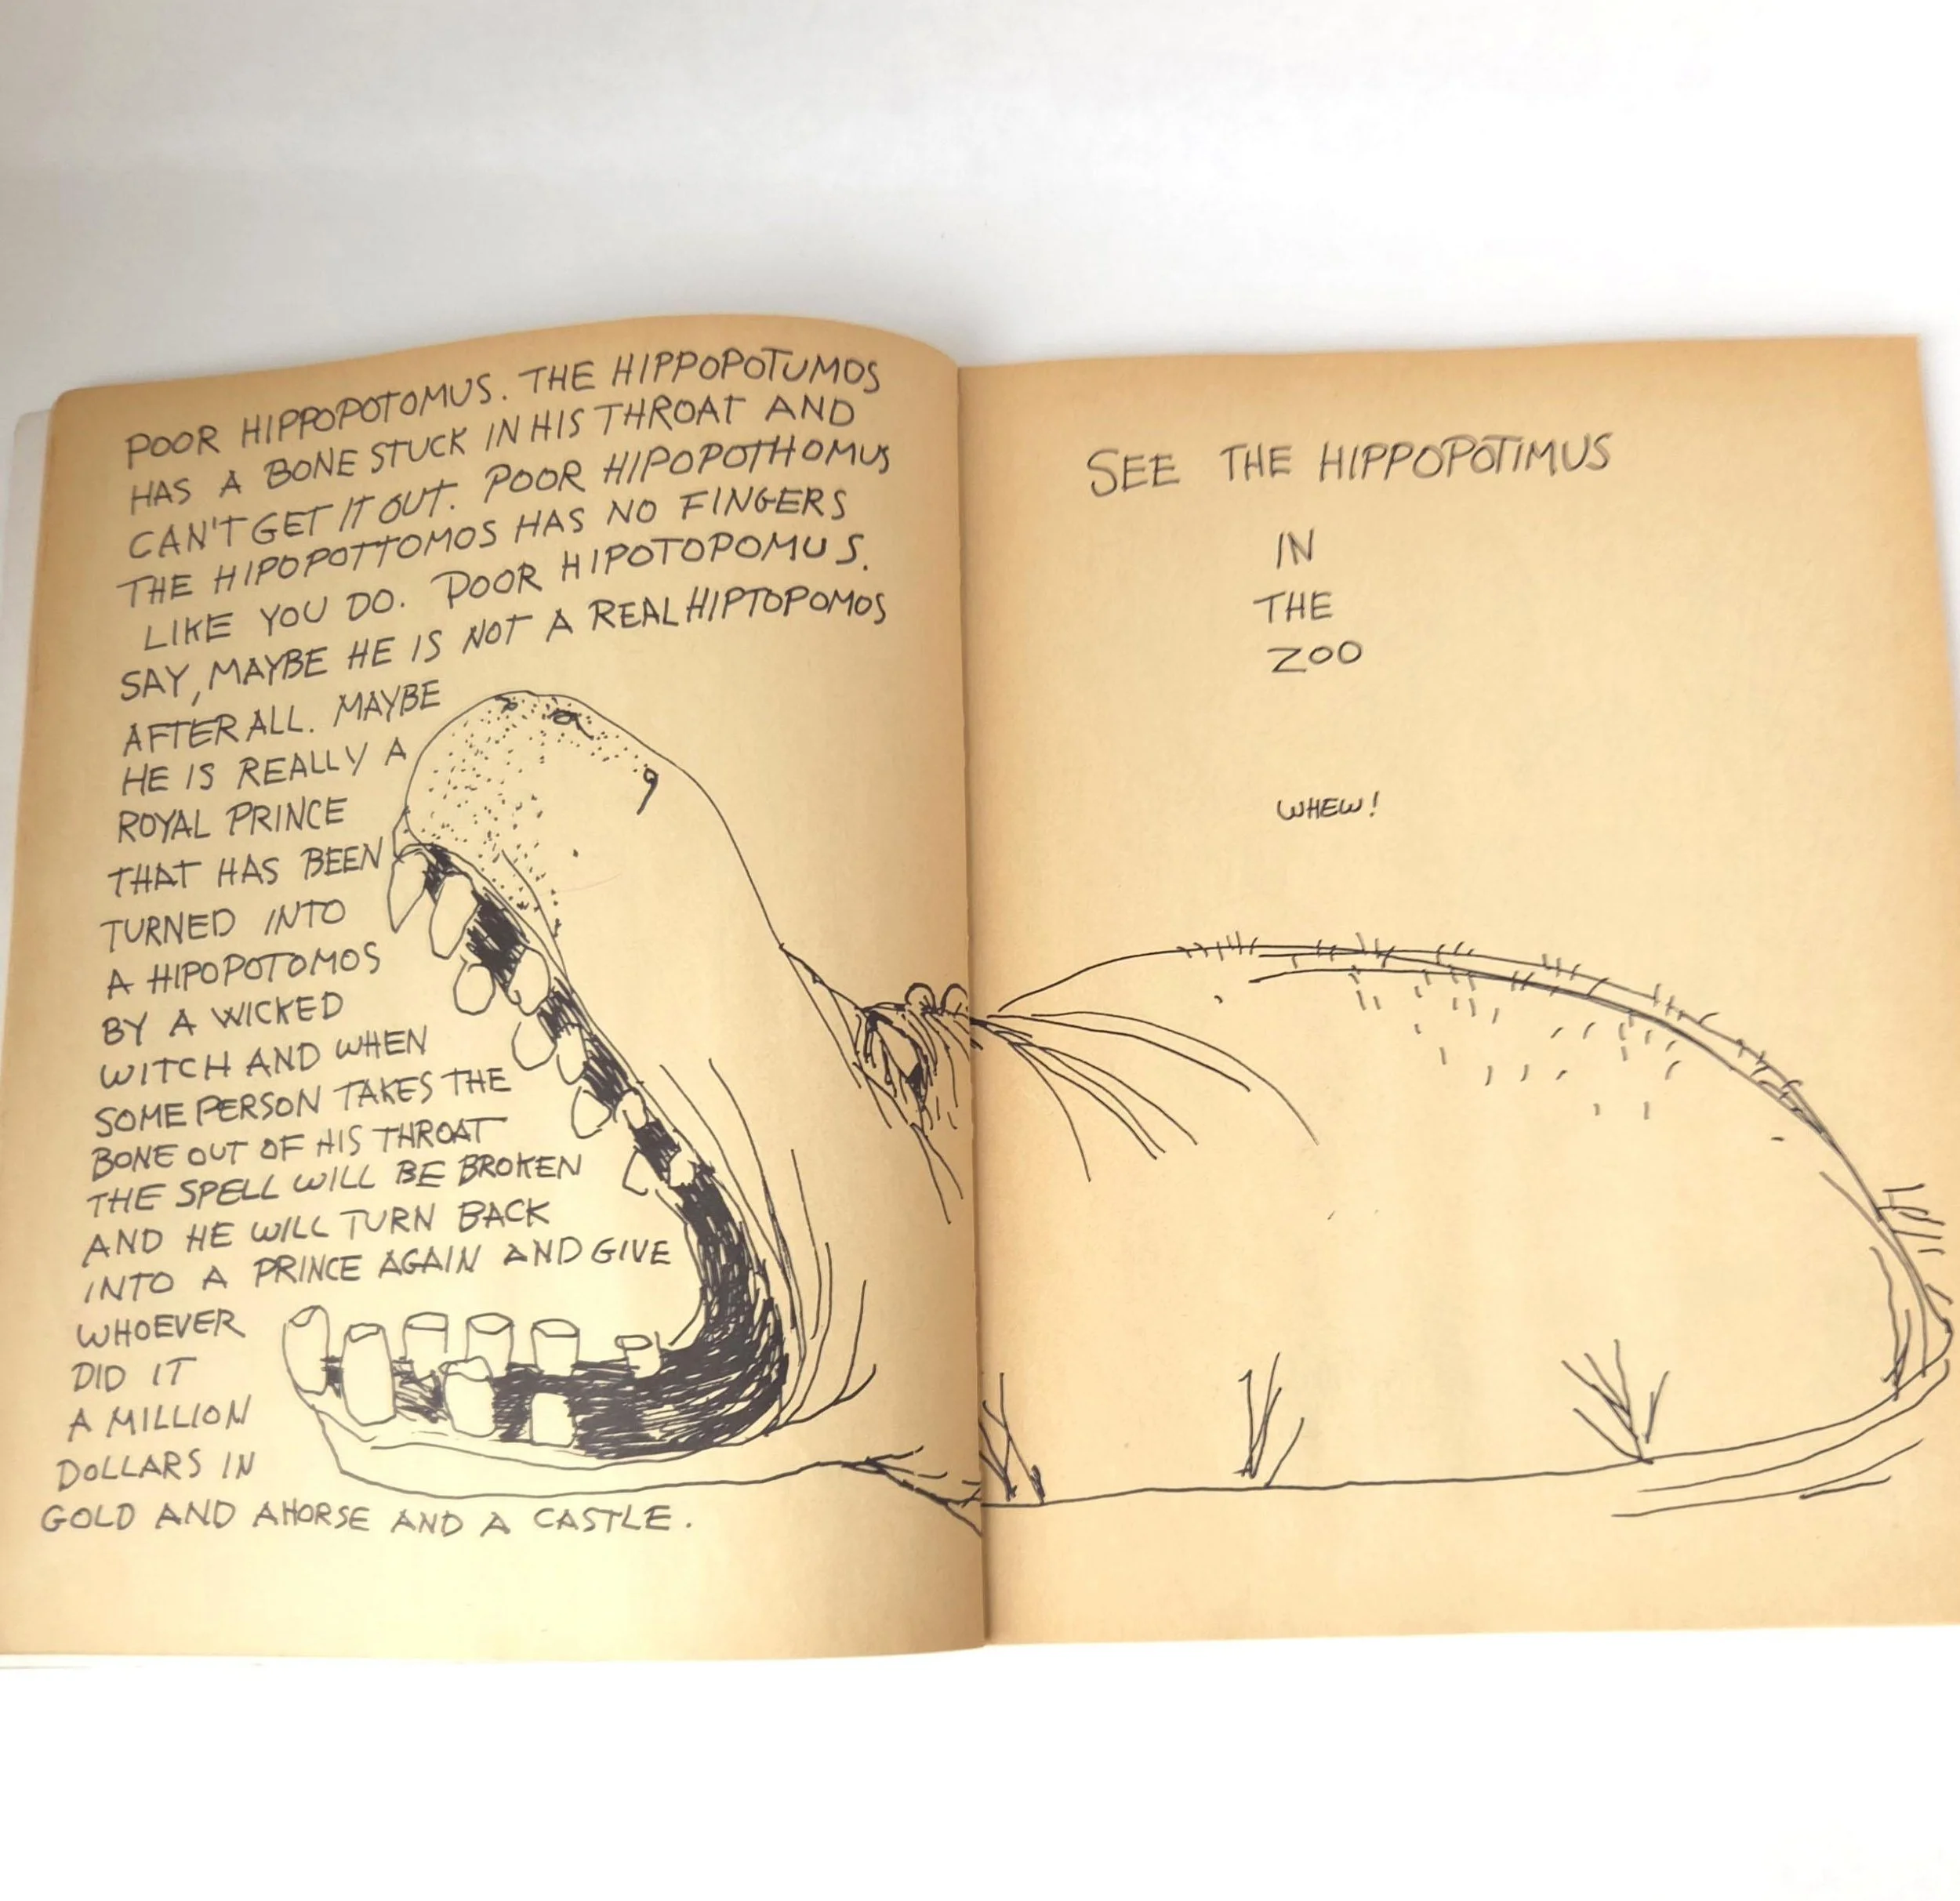 POOR HIPPOPOTOMUS. THE HIPPOPOTUMOS
HAS A BONE STUCK IN HIS THROAT AND
CAN'T GET IT OUT. POOR HIPOPOTHOMUS
THE HIPOPOTTOMOS HAS NO FINGERS
LIKE YOU DO. POOR HIPOTOPOMUS.
SAY, MAYBE HE IS NOT A REAL HIPTOPOMOS
AFTER ALL. MAYBE
HE IS REALLY A
ROYAL PRINCE
THAT HAS BEEN
TURNED INTO
A HIPOPOTOMOS
BY A WICKED
WITCH AND WHEN
SOME PERSON TAKES THE
BONE OUT OF HIS THROAT
THE SPELL WILL BE BROKEN
AND HE WILL TURN BACK
INTO A PRINCE AGAIN AND GIVE
WHOEVER
DID IT
A MILLION
DOLLARS IN
GOLD AND A HORSE AND A CASTLE.
SEE THE HIPPOPOTIMUS
IN
THE
ZOO
WHEW!